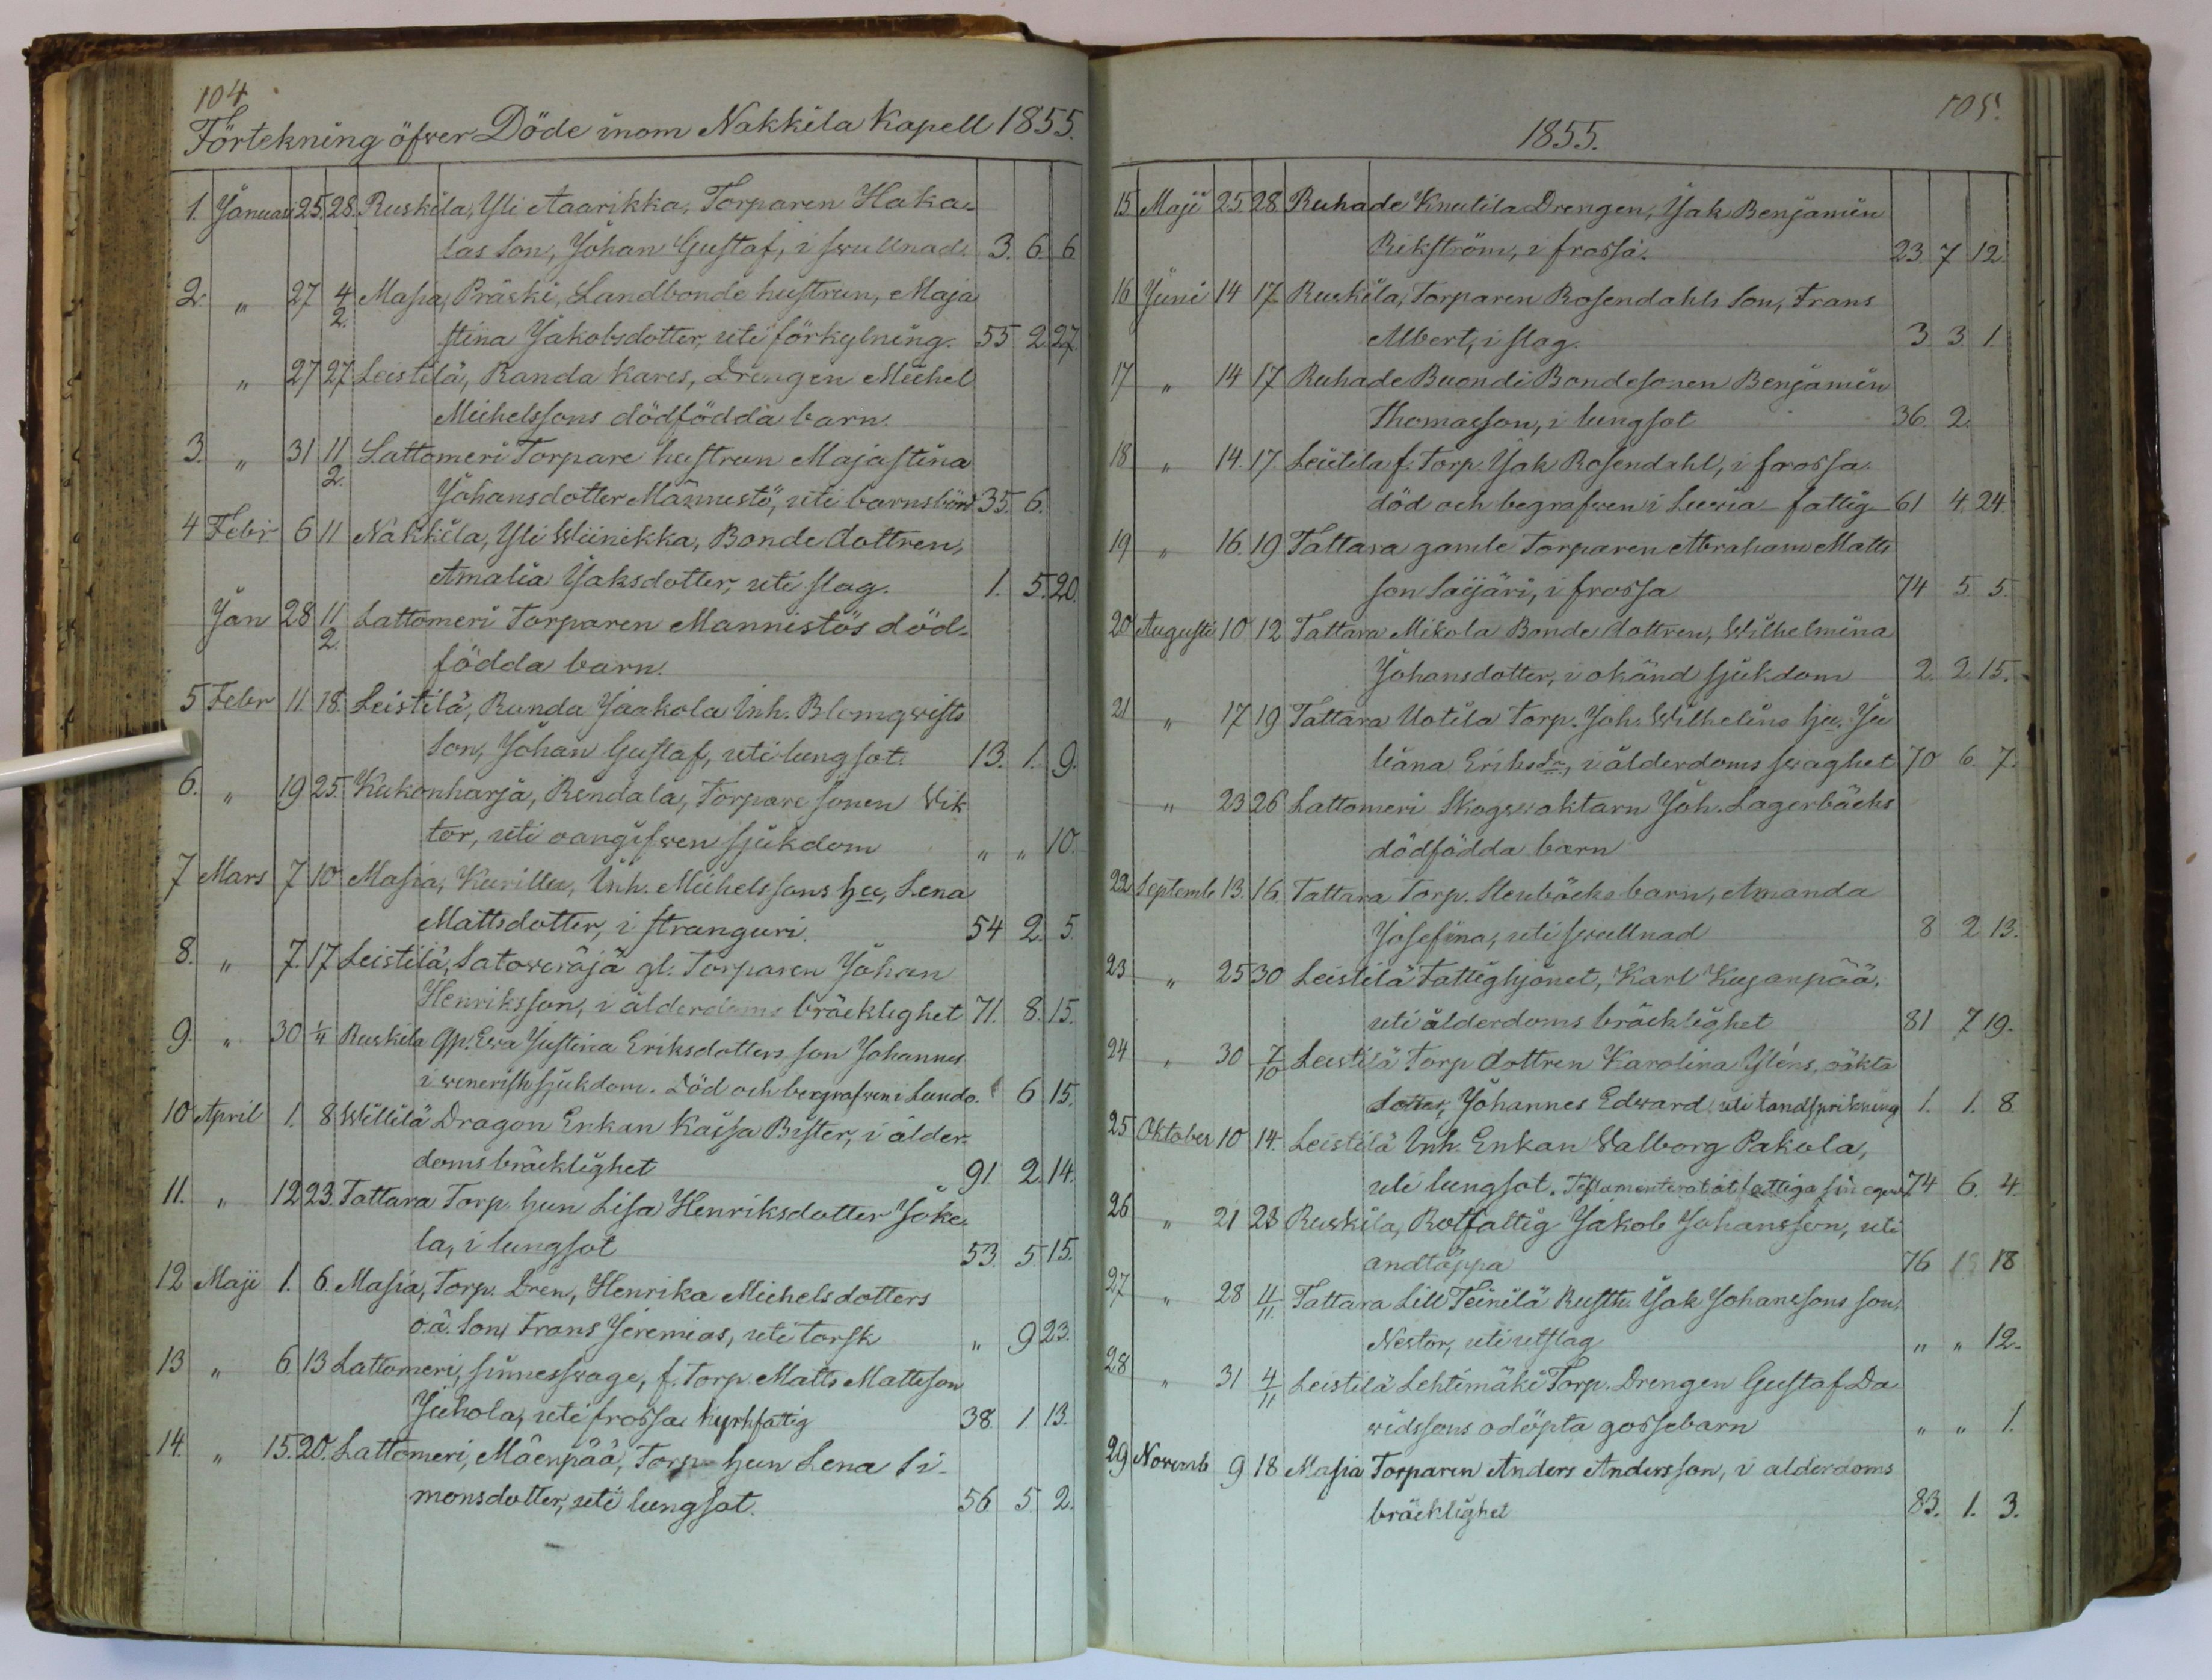 104
Förtekning öfwer Döde inom Nakkila Kapell 1855.
1. Januari 25. 28. Ruskila, Yli Aaarikka, Torparen Haka-
las Son, Johan Gustaf, i swullnad. 3. 6. 6
2. " 27 4/2. Masia, Präski, Landbonde hustrun, Maja
stina Jakobsdotter, uti förkylning. 55 2 27
" 27 27 Leistilä, Randa Kares, Drengen Michel
Michelssons dödfödda barn.
3. " 31 11/2. Lattomeri Torpare hustrun Majastina
Johansdotter Männistö, uti barnsbörd 35. 6.
4 Febr 6 11 Nakkila, Yli Wiinikka, Bonde dottren,
Amalia Jaksdotter, uti slag. 1. 5. 20.
Jan 28 11/2. Lattomeri Torparen Mannistös död-
födda barn.
5 Febr 11. 18. Leistilä, Runda Jaakola Inh. Blomqwists
Son, Johan Gustaf, uti lungsot. 13. 1. 9.
6. " 19 25. Kukonharja, Rindala, Torpare sonen Wik
tor, uti oangifwen sjukdom " " 10.
7 Mars 7 10 Masia, Kurillu, Inh. Michelssons hu, Lena
Mattsdotter, i stranguri. 54 2. 5.
8. " 7. 17 Leistilä, Satoweräjä gl. Torparen Johan
Henriksson, i ålderdoms bräcklighet 71. 8. 15.
9. " 30 1/4 Ruskila Qp. Ewa Justina Eriksdotters son Johannes
i wenerisk sjukdom. Död och bergrafwen i Lundo. 6 15.
10 April 1. 8 Willilä Dragon Enkan Kajsa Bister, i ålder-
doms bräcklighet 91. 2. 14.
11. " 12 23. Tattara Torp. hun Lisa Henriksdotter Joke-
la, i lungsot 53. 5. 15.
12 Maji 1. 6. Masia, Torp. Dren, Henrika Michelsdotters
o.ä. Son, Frans Jeremias, uti torsk " 9 23.
13 " 6. 13 Lattomeri, sinnesswage, f. Torp. Matts Mattsson
Juhola, uti frossa kyrkfattig 38 1 13.
14. " 15. 20. Lattomeri, Mäenpää, Torp hun Lena Si-
monsdotter, uti lungsot. 56 5 2.
105.
1855.
15 Maji 25. 28 Ruhade Knutila Drengen, Jak Benjamin
Rikström, i frossa. 23. 7 12.
16 Juni 14 17. Ruskila, Torparen Rosendahls Son, Frans
Albert, i slag. 3 3 1.
17 " 14 17 Ruhade Buondi Bondesonen Benjamin
Thomasson, i lungsot 36. 2.
18 " 14. 17. Leistila f. Torp. Jak Rosendahl, i frossa
död och begrafwen i Luvia fattig 61 4. 24.
19 " 16. 19 Tattara gamle Torparen Abraham Matts
son Saijäri, i frossa 74 5. 5.
20 Augusti 10 12 Tattara Mikola Bonde dottren, Wilhelmina
Johansdotter, i okänd sjukdom 2. 2 15.
21 " 17 19 Tattara Uotila Torp. Joh. Wilhelins hu. Ju
liana Eriksdr, i ålderdoms swaghet 70 6. 7.
" 23 26 Lattomeri Skogswaktarn Joh. Lagerbäcks
dödfödda barn
22 Septembr 13. 16. Tattara Torp. Stenbäcks barn, Amanda
Josefina, uti swullnad 8 2 13.
23 " 25 30 Leistilä Fattighjonet, Karl Kujanpää,
uti ålderdoms bräcklighet 81 7 19.
24 " 30 7/10 Leistilä Torp dottren Karolina Yléns, oäkta
Johannes Edward uti tandsprikning 1. 1. 8.
25 Oktober 10 14. Leistilä Inh. Enkan Walborg Pakola,
uti lungsot. Testamenterat åt fattiga sin egend 74 6. 4.
26 " 21 28 Ruskila, Rotfattig Jakob Johansson, uti
andtäppa 76 18
27 " 28 4/11. Tattara Lill Teinilä Rusth. Jak Johanssons son,
Nestor, uti utslag " " 12.
28 " 31 4/11 Leistilä Lehtimäki Torp. Drengen Gustaf Da
widssons odöpta gossebarn " " 1.
29 Novemb 9 18 Masia Torparen Anders Andersson, i alderdoms
bräcklighet 83. 1. 3.